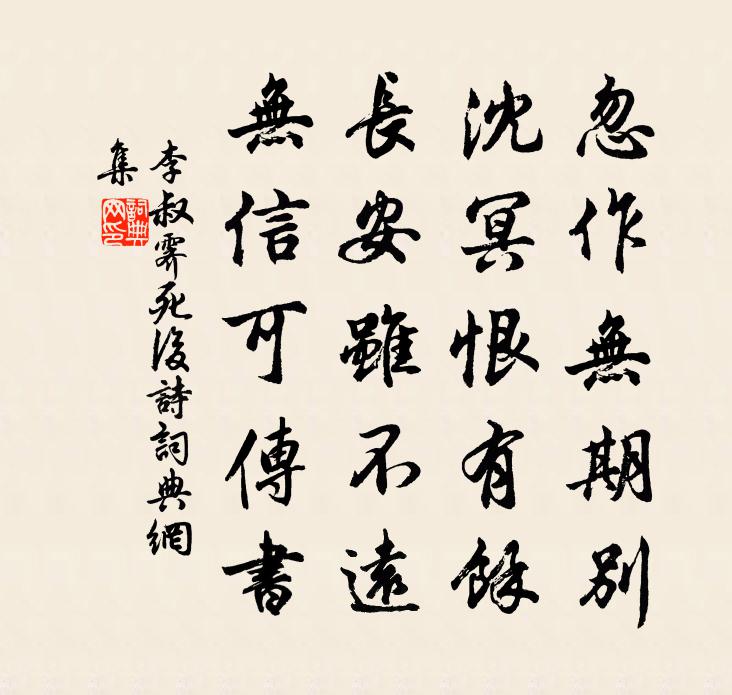 忽作無期別
沈冥恨有餘
長安雖不遠
無信可傳書
李叔霽死後詩詞典網
集
詞典網印